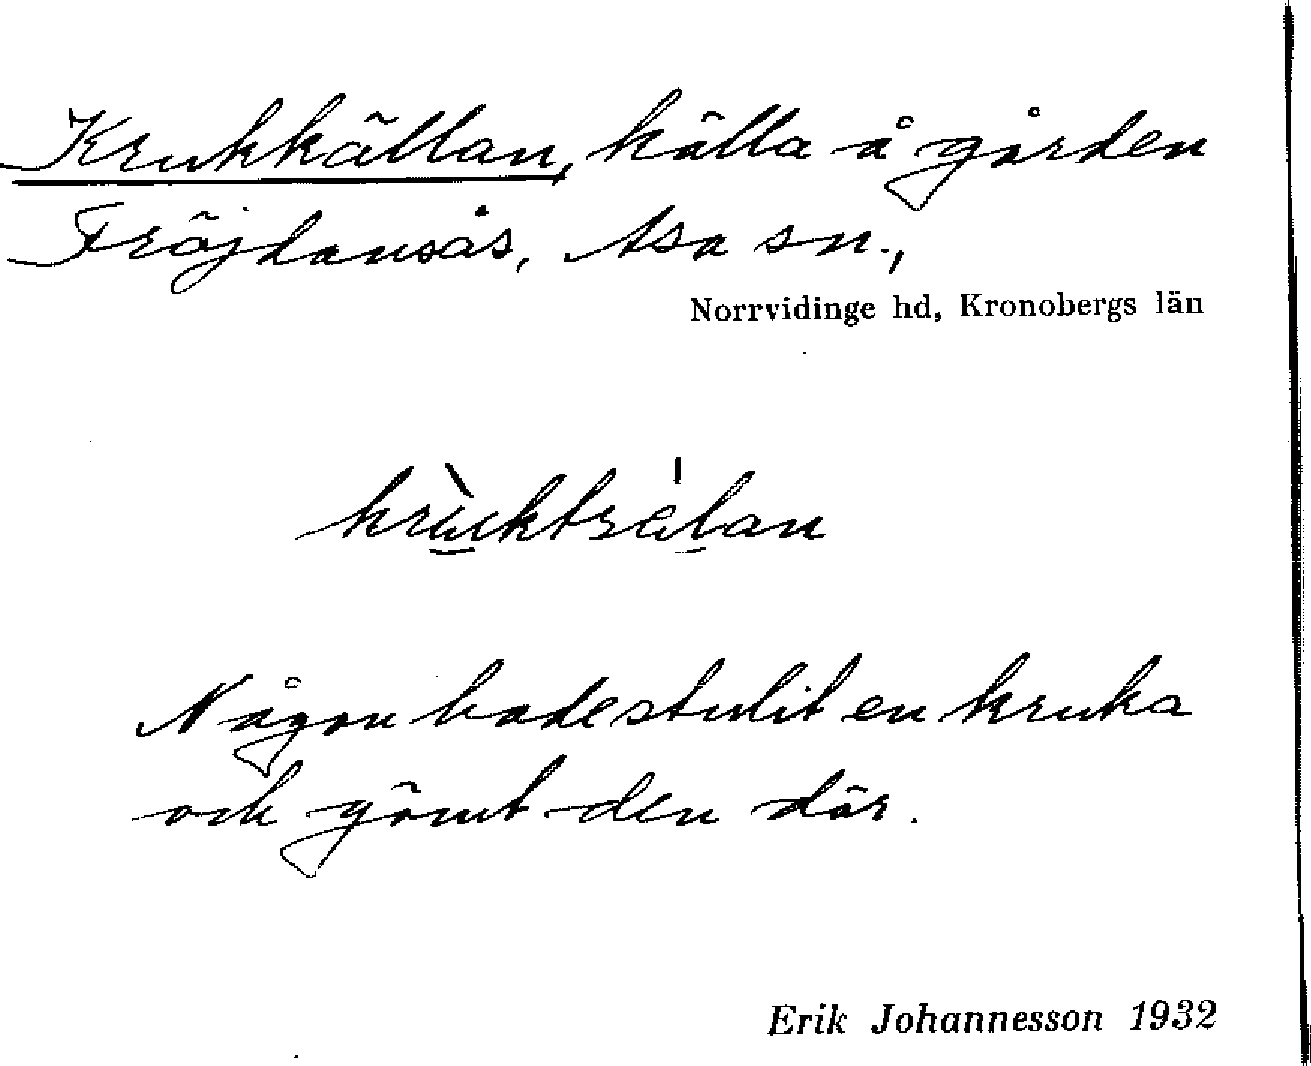 Krukkällan, källa å gården
Fröjdansås, Asa sn.,
Norrvidinge hd, Kronobergs län
Någon hade stulit en kruka
och gömt den där.
Erik Johannesson 1932